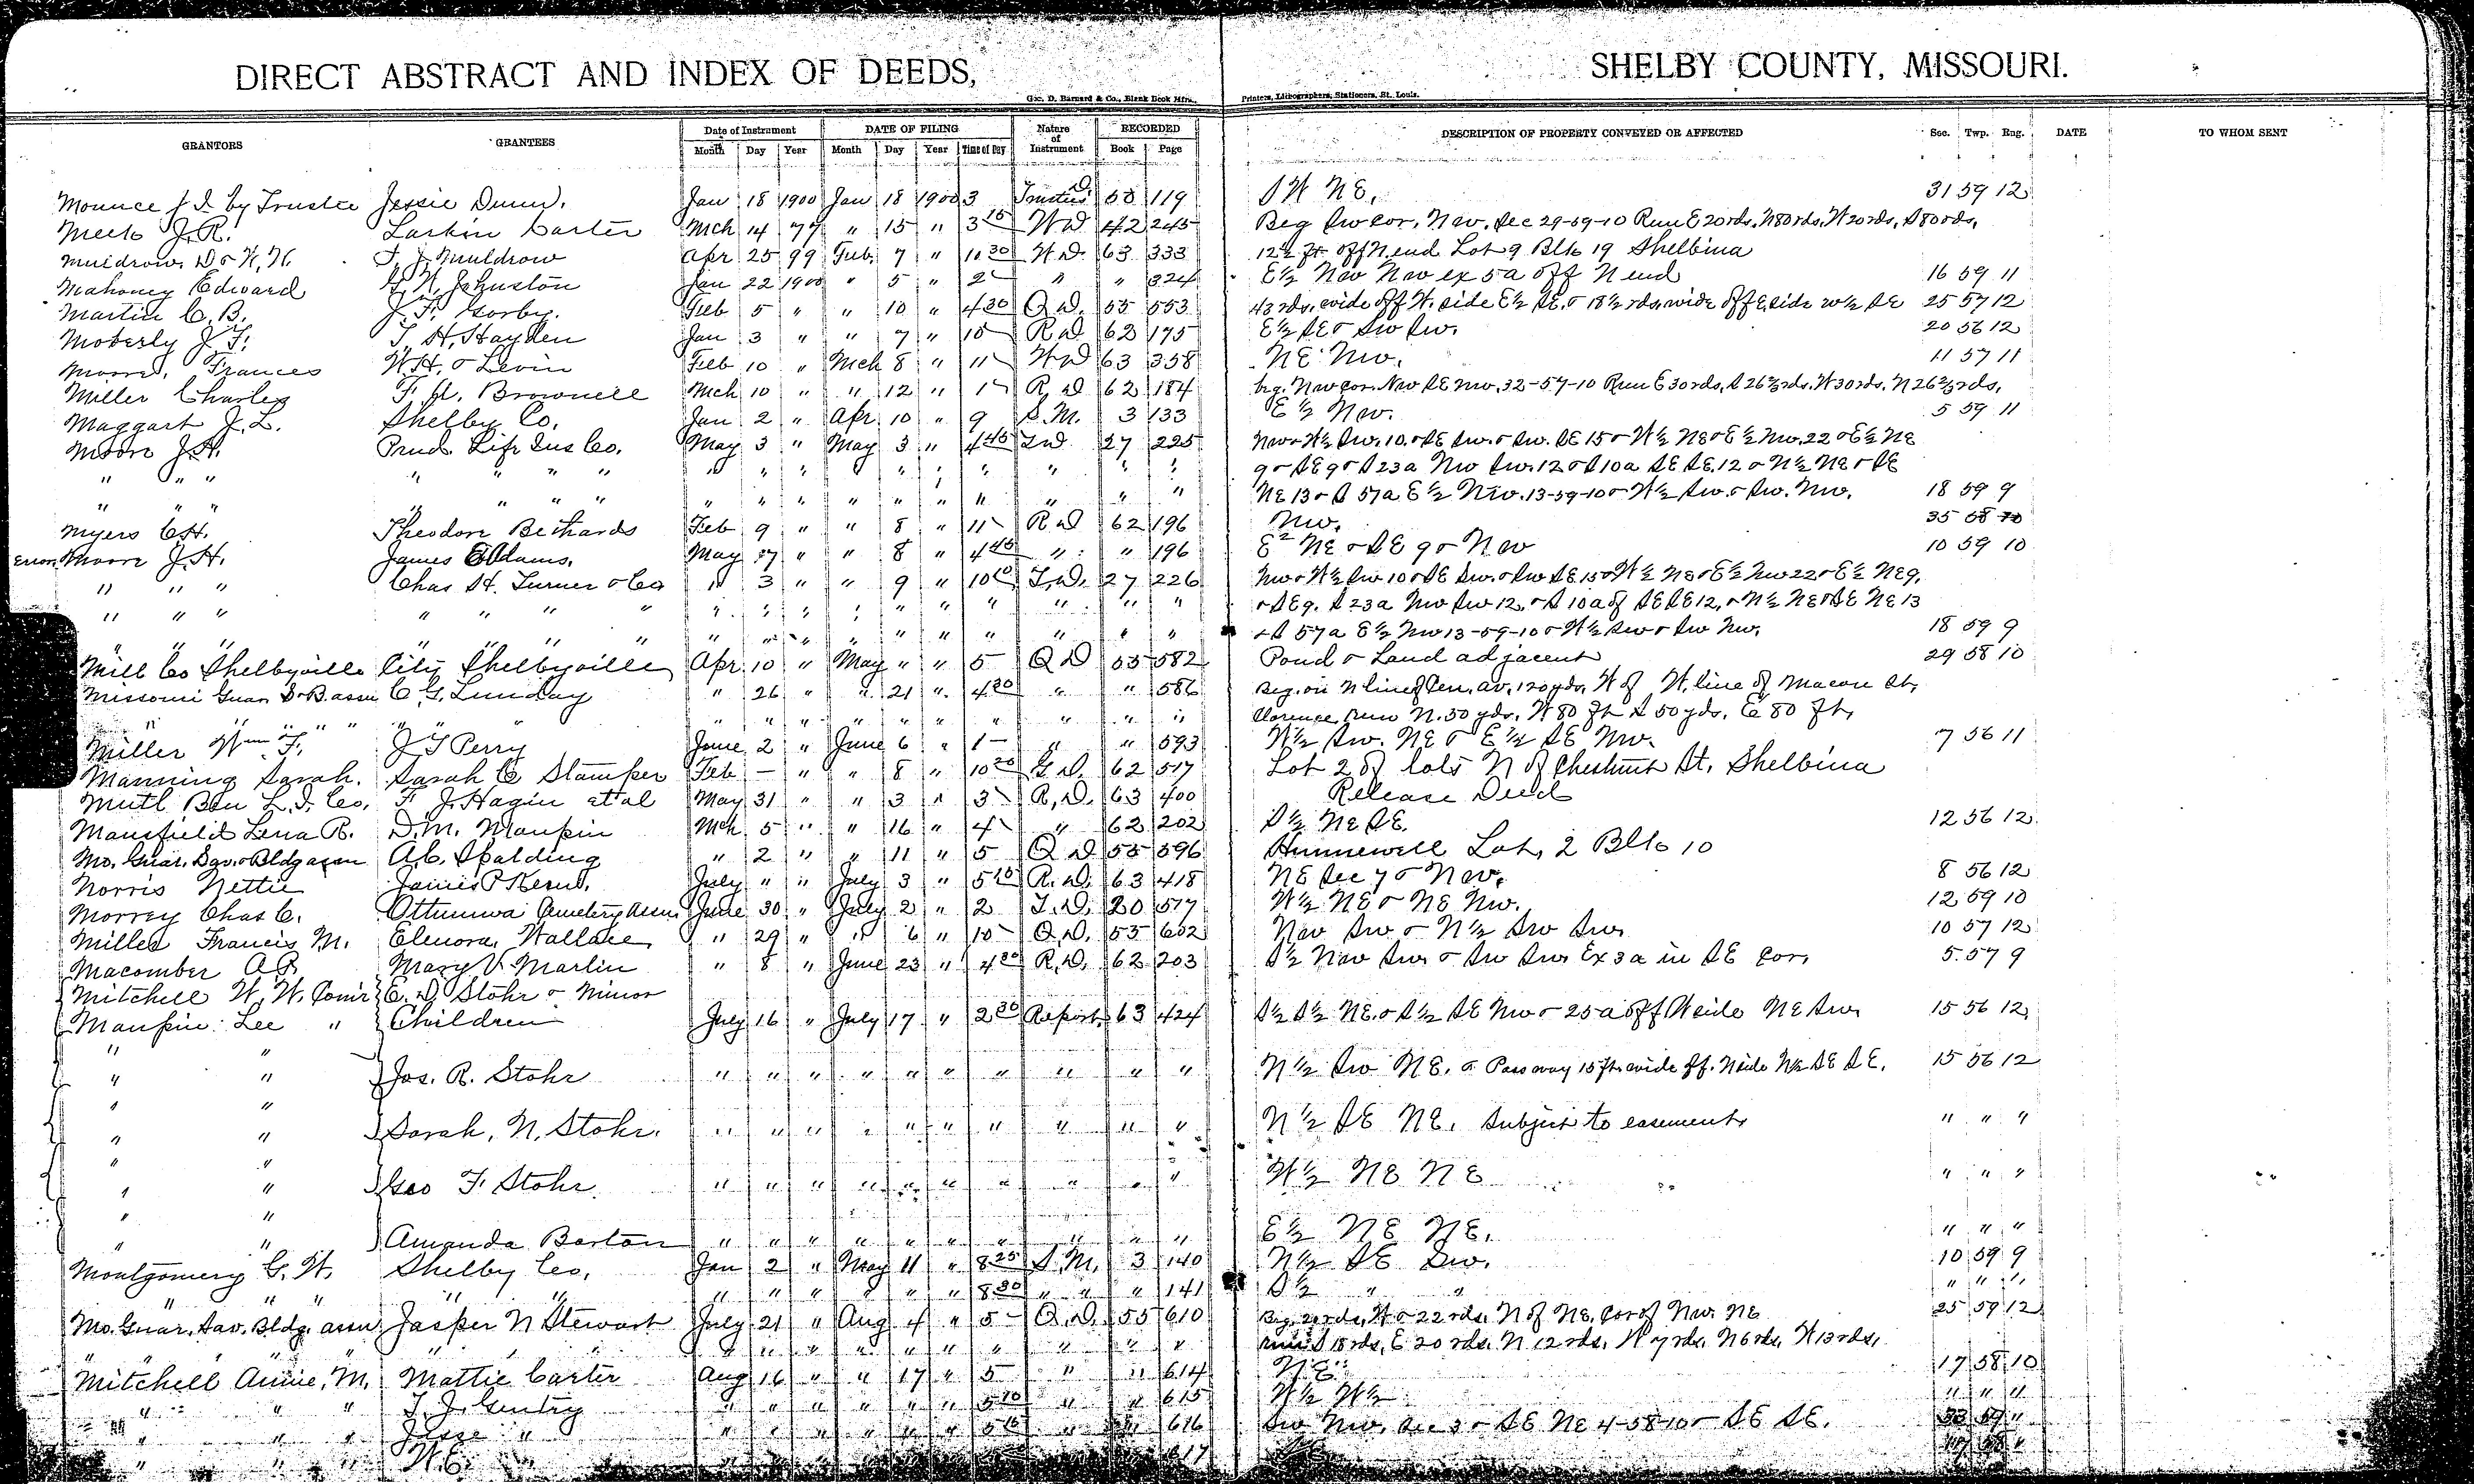 DIRECT ABSTRACT AND INDEX OF DEEDS, SHELBY COUNTY, MISSOURI.
Geo. D. Barnard & Co., Blank Book Mfrs., Printers, Lithographers, Stationers, St. Louis.
GRANTORS GRANTEES Date of Instrument DATE OF FILING Nature of Instrument RECORDED DESCRIPTION OF PROPERTY CONVEYED OR AFFECTED Sec. Twp. Rng. DATE TO WHOM SENT
Month Day Year Month Day Year Time of Day Book Page
Mounce J I by Trustee Jessie Dunn. Jan 18 1900 Jan 18 1900 3 Trustees D 119 SW NE. 31 59 12
Meets J.R. Larkin Carter Mch 14 " 15 " 3 15 WD 42 245 Beg Sw cor. Nw. Sec 29-59-10 Run E 20rds. N80rds. W20rds. S80rds.
Muldrow. D & H.H. J. J. Muldrow Apr 25 99 Feb. 7 " 11 30 W.D. 63 333 12½ ft off N. end Lot 9 Blk 19 Shelbina
Mahoney Edward Johnston Jan 22 1900 " 5 " 2 " " 324 E½ Nw Nw ex 5a off N end 16 59 11
Martin C. B. J. F. Gorby. Feb 5 " " 10 " 4 30 Q D. 55 553 43 rds. wide off W. side E½ SE. & 18½ rds. wide off E. side W½ SE 25 57 12
Moberly J F. T. H. Hayden Jan 3 " " 7 " 10 R D 62 175 E½ SE & Sw Sw. 20 56 12
Moore, Frances W.H. & Levin Feb 10 " Mch 8 " 11 WD 63 358 NE Nw. 11 57 11
Miller Charles F. H. Brownell Mch 10 " " 12 " 1 R. D 62 184 beg. Nw cor. Nw SE Nw. 32-57-10 Run E 30rds. S 26⅔rds. W 30rds. N 26⅔rds.
Maggart J. L. Shelby Co. Jan 2 " Apr. 10 " 9 S.M. 3 133 E½ Nw. 5 59 11
Moore J.H. Prud. Life Ins Co. May 3 " May 3 " 4 45 T.D 27 225 Nw & W½ Sw. 10. & SE Sw. & Sw. SE 15 & W½ NE & E½ Nw. 22 & E½ NE
" " " " " " " " " " " " " " " " " 9 & SE 9 & S 23a Nw Sw. 12 & S 10a SE SE. 12 & N½ NE & SE
" " " " " " " " " " " " " " " " " NE 13 & S 57a E½ Nw. 13-59-10 & W½ Sw. & Sw. Nw. 18 59 9
Myers C.H. Theodore Bethards Feb 9 " " 8 " 11 R D 62 196 Nw. 35 58
Error Moore J.H. James E Adams. May 7 " " 8 " 4 45 " " 196 E½ NE & SE 9 & Nw 10 59 10
" " " Chas H. Turner & Co " 3 " " 9 " 10 10 T.D. 27 226 Nw & W½ Sw 10 & SE Sw. & Sw SE 15 & W½ NE & E½ Nw 22 & E½ NE 9.
" " " " " " " " " " " " " " " " " & SE 9. S 23a Nw Sw 12. & S 10a of SE SE 12. & N½ NE & SE NE 13
" " " " " " " " " " " " " " " " " & S 57a E½ Nw 13-59-10 & W½ Sw & Sw Nw. 18 59 9
Mill Co Shelbyville City Shelbyville Apr. 10 " May " " 5 Q D 55 582 Pond & Land adjacent 29 58 10
Missouri Guar S & B. assn C. G. Lunday " 26 " " 21 " 4 30 " " 586 Beg. on N line of Pen. av. 120yds. W of W. line of Macon St.
" " " " " " " " " " " " " " " " Clarence, Run N. 50 yds. W 80 ft S 50 yds. E 80 ft.
Miller Wm F. J T Perry June 2 " June 6 " 1 " " 593 W½ Sw. NE & E½ SE Nw. 7 56 11
Manning Sarah. Sarah C Stamper Feb — " " 8 " 10 20 G D. 62 517 Lot 2 of lots N of Chestnut St. Shelbina
Mutl Ben L.I. Co. F J. Hagin et al May 31 " " 3 " 3 R.D. 63 400 Release Deed
Mansfield Lena R. D.M. Maupin Mch 5 " " 16 " 4 " 62 202 S½ NE SE. 12 56 12
Mo. Guar. Sav. & Bldg assn A.C. Spalding " 2 " " 11 " 5 Q D 55 596 Hunnewell Lot, 2 Blk 10
Norris Nettie James P Kerns. July " " July 3 " 5 10 R. D. 63 418 NE Sec 7 & Nw. 8 56 12
Morrey Chas C. Ottumwa Cemetery Assn. June 30 " July 2 " 2 T. D. 20 517 W½ NE & NE Nw. 12 59 10
Miller Francis M. Elenora Wallace " 29 " " 6 " 10 Q.D. 55 602 Nw Sw & N½ Sw Sw. 10 57 12
Macomber A P. Mary V. Martin " 8 " June 23 " 4 30 R.D. 62 203 S½ Nw Sw. & Sw Sw. Ex 3a in SE cor. 5 57 9
Mitchell W. W. Comr E. D Stohr & Minor
Maupin Lee " Children July 16 " July 17 " 2 30 Report 63 424 S½ S½ NE. & S½ SE Nw & 25a off W side NE Sw. 15 56 12
" "
" " Jos. R. Stohr " " " " " " " " " " N½ Sw NE. & Passway 15 ft. wide off. N side SE SE. 15 56 12
" "
" " Sarah. N. Stohr. " " " " " " " " " " N½ SE NE. Subject to easement. " " "
" "
" " Geo F. Stohr. " " " " " " " " " " W½ NE NE " " "
" "
" " Amanda Barton " " " " " " " " " " E½ NE NE. " " "
Montgomery G. W. Shelby Co. Jan 2 " May 11 " 8 25 S.M. 3 140 N½ SE Sw. 10 59 9
" " " " " " " " " " " 8 30 " " " 141 S½ " " " " "
Mo. Guar. Sav. Bldg. assn Jasper N Stewart July 21 " Aug 4 " 5 Q.D. 55 610 Beg. rds. W & 22 rds. N of NE. cor of Nw. NE 25 59 12
" " " " " " " " " " " " " " " S 18 rds. E 20 rds. N 12 rds. W 7 rds. N 6 rds. W 13 rds.
Mitchell Annie. M. Mattie Carter Aug 16 " " 17 " 5 " " 614 NE 17 58 10
" " " T. J. Gentry " " " " " " 5 10 " " 615 W½ W½ " " "
" " " Jesse " " " " " " " 5 15 " " 616 Sw Nw. Sec 3 & SE NE 4-58-10 & SE SE. 33 59 "
" " " W. E. " 617